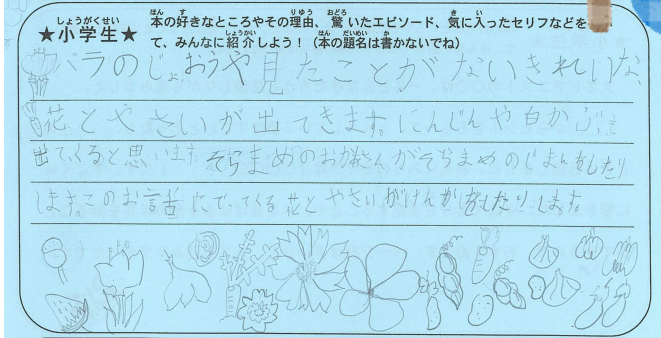 ★小学生★
しょうがくせい
本の好きなところやその理由、驚いたエピソード、気に入ったセリフなどを
ほん す りゆう おどろ き い
て、みんなに紹介しよう！（本の題名は書かないでね）
しょうかい ほん だいめい か
バラのじょおうや見たことがないきれいな
花とやさいが出てきます。にんじんや白か
出てくると思います。そらまめのお母さんがそらまめのじまんをしたり
します。このお話にでてくる花とやさいがけんかをしたりします。